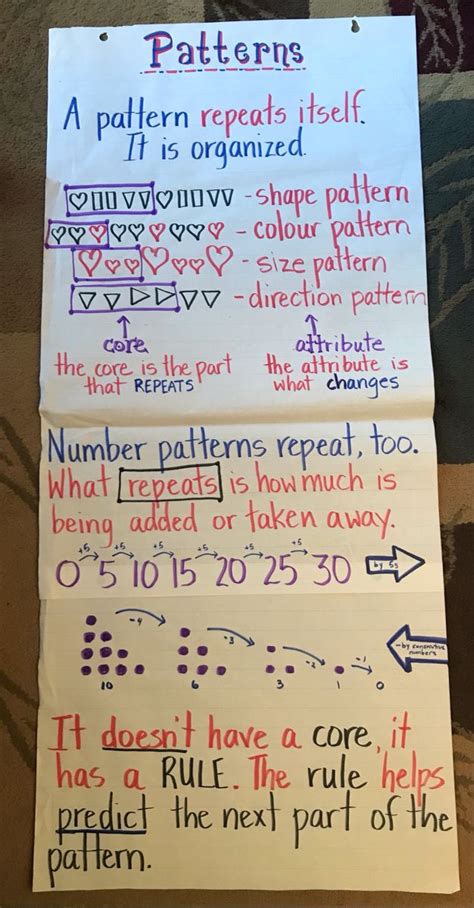 Patterns
A pattern repeats itself.
It is organized.
- shape pattern
- colour pattern
- size pattern
- direction pattern
core
the core is the part
that REPEATS
attribute
the attribute is
what changes
Number patterns repeat, too.
What repeats is how much is
being added or taken away.
+5 +5 +5 +5 +5 +5
0 5 10 15 20 25 30 by 5s
-4 -3 -2 -1
- by consecutive
numbers
10 6 3 1 0
It doesn't have a core, it
has a RULE. The rule helps
predict the next part of the
pattern.